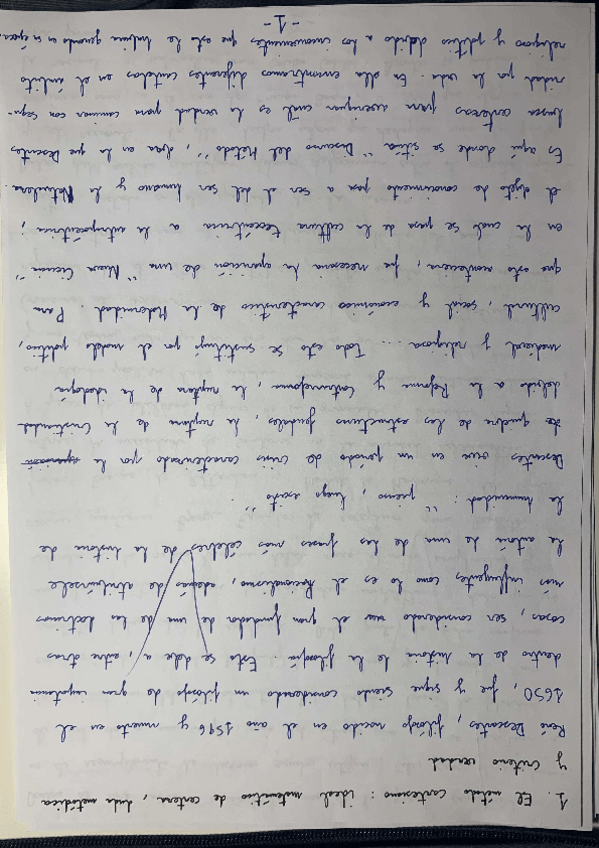 1. El método cartesiano: ideal matemático de certeza, duda metódica
y criterio verdad
René Descartes, filósofo nacido en el año 1596 y muerto en el
1650, fue y sigue siendo considerado un filósofo de gran importancia
dentro de la historia de la filosofía. Esto se debe a, entre otras
cosas, ser considerado el gran fundador de una de las doctrinas
más influyentes como lo es el Racionalismo, además de atribuírsele
la autoría de una de las frases más célebres de la historia de
la humanidad: "pienso, luego existo".
Descartes vive en un período de crisis caracterizado por la
de quiebra de las estructuras feudales, la ruptura de la Cristiandad
debido a la Reforma y Contrarreforma, la ruptura de la ideología
medieval y religiosa... Todo esto se sustituyó por el modelo político,
cultural, social y económico característico de la Modernidad. Para
que esto aconteciera, fue necesaria la aparición de una "Nueva Ciencia"
en la cual se pasa de la cultura teocéntrica a la antropocéntrica;
el objeto de conocimiento pasa a ser el del ser humano y la Naturaleza.
Es aquí donde se sitúa "Discurso del Método", obra en la que Descartes
busca certezas para averiguar cuál es la verdad para caminar con segu-
ridad por la vida. En ella encontramos diferentes cautelas en el ámbito
religioso y político debido a los inconvenientes que esto le hubiera generado en su época.
-1-